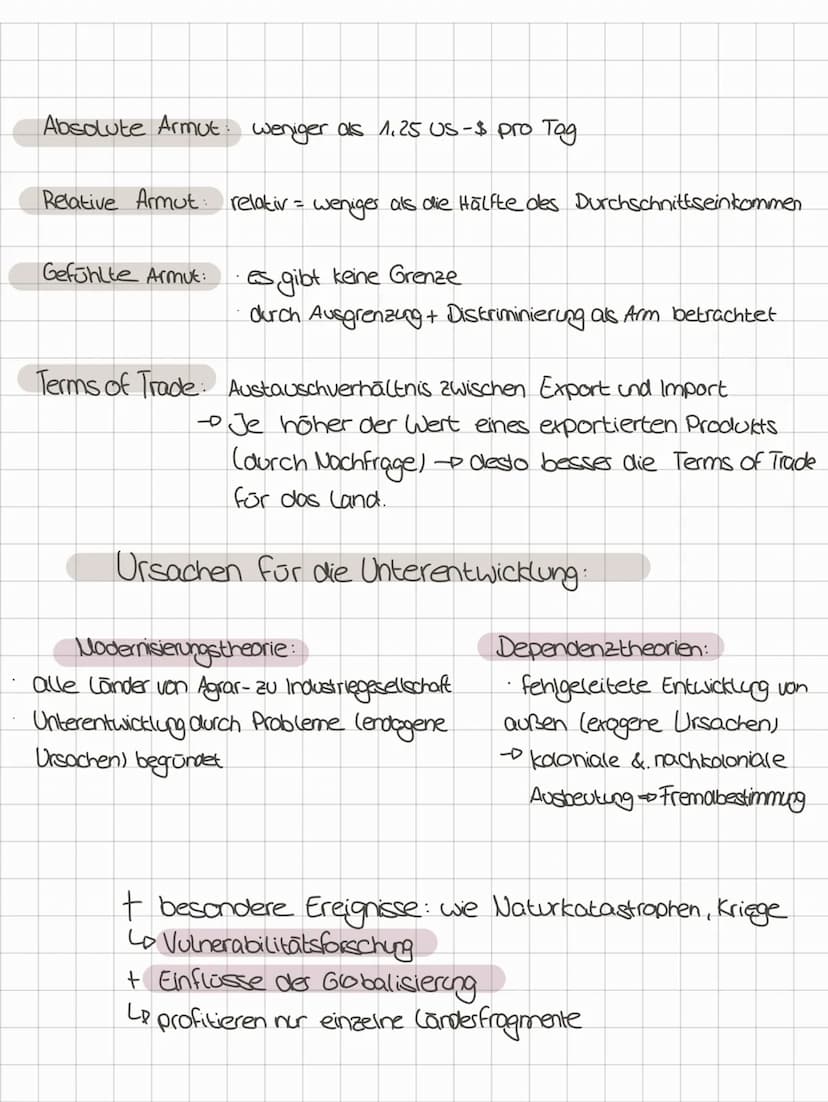 Absolute Armut: weniger als 1,25 US-$ pro Tag
Relative Armut: relativ = weniger als die Hälfte des Durchschnittseinkommen
Gefühlte Armut: · es gibt keine Grenze
· durch Ausgrenzung + Diskriminierung als Arm betrachtet
Terms of Trade: Austauschverhältnis zwischen Export und Import
→ Je höher der Wert eines exportierten Produkts
(durch Nachfrage) → desto besser die Terms of Trade
für das Land.
Ursachen für die Unterentwicklung:
Modernisierungstheorie:
· alle Länder von Agrar- zu Industriegesellschaft
· Unterentwicklung durch Probleme (endogene
Ursachen) begründet
Dependenztheorien:
· fehlgeleitete Entwicklung von
außen (exogene Ursachen)
→ koloniale & nachkoloniale
Ausbeutung → Fremdbestimmung
+ besondere Ereignisse: wie Naturkatastrophen, Kriege
↳ Vulnerabilitätsforschung
+ Einflüsse der Globalisierung
↳ profitieren nur einzelne Länderfragmente